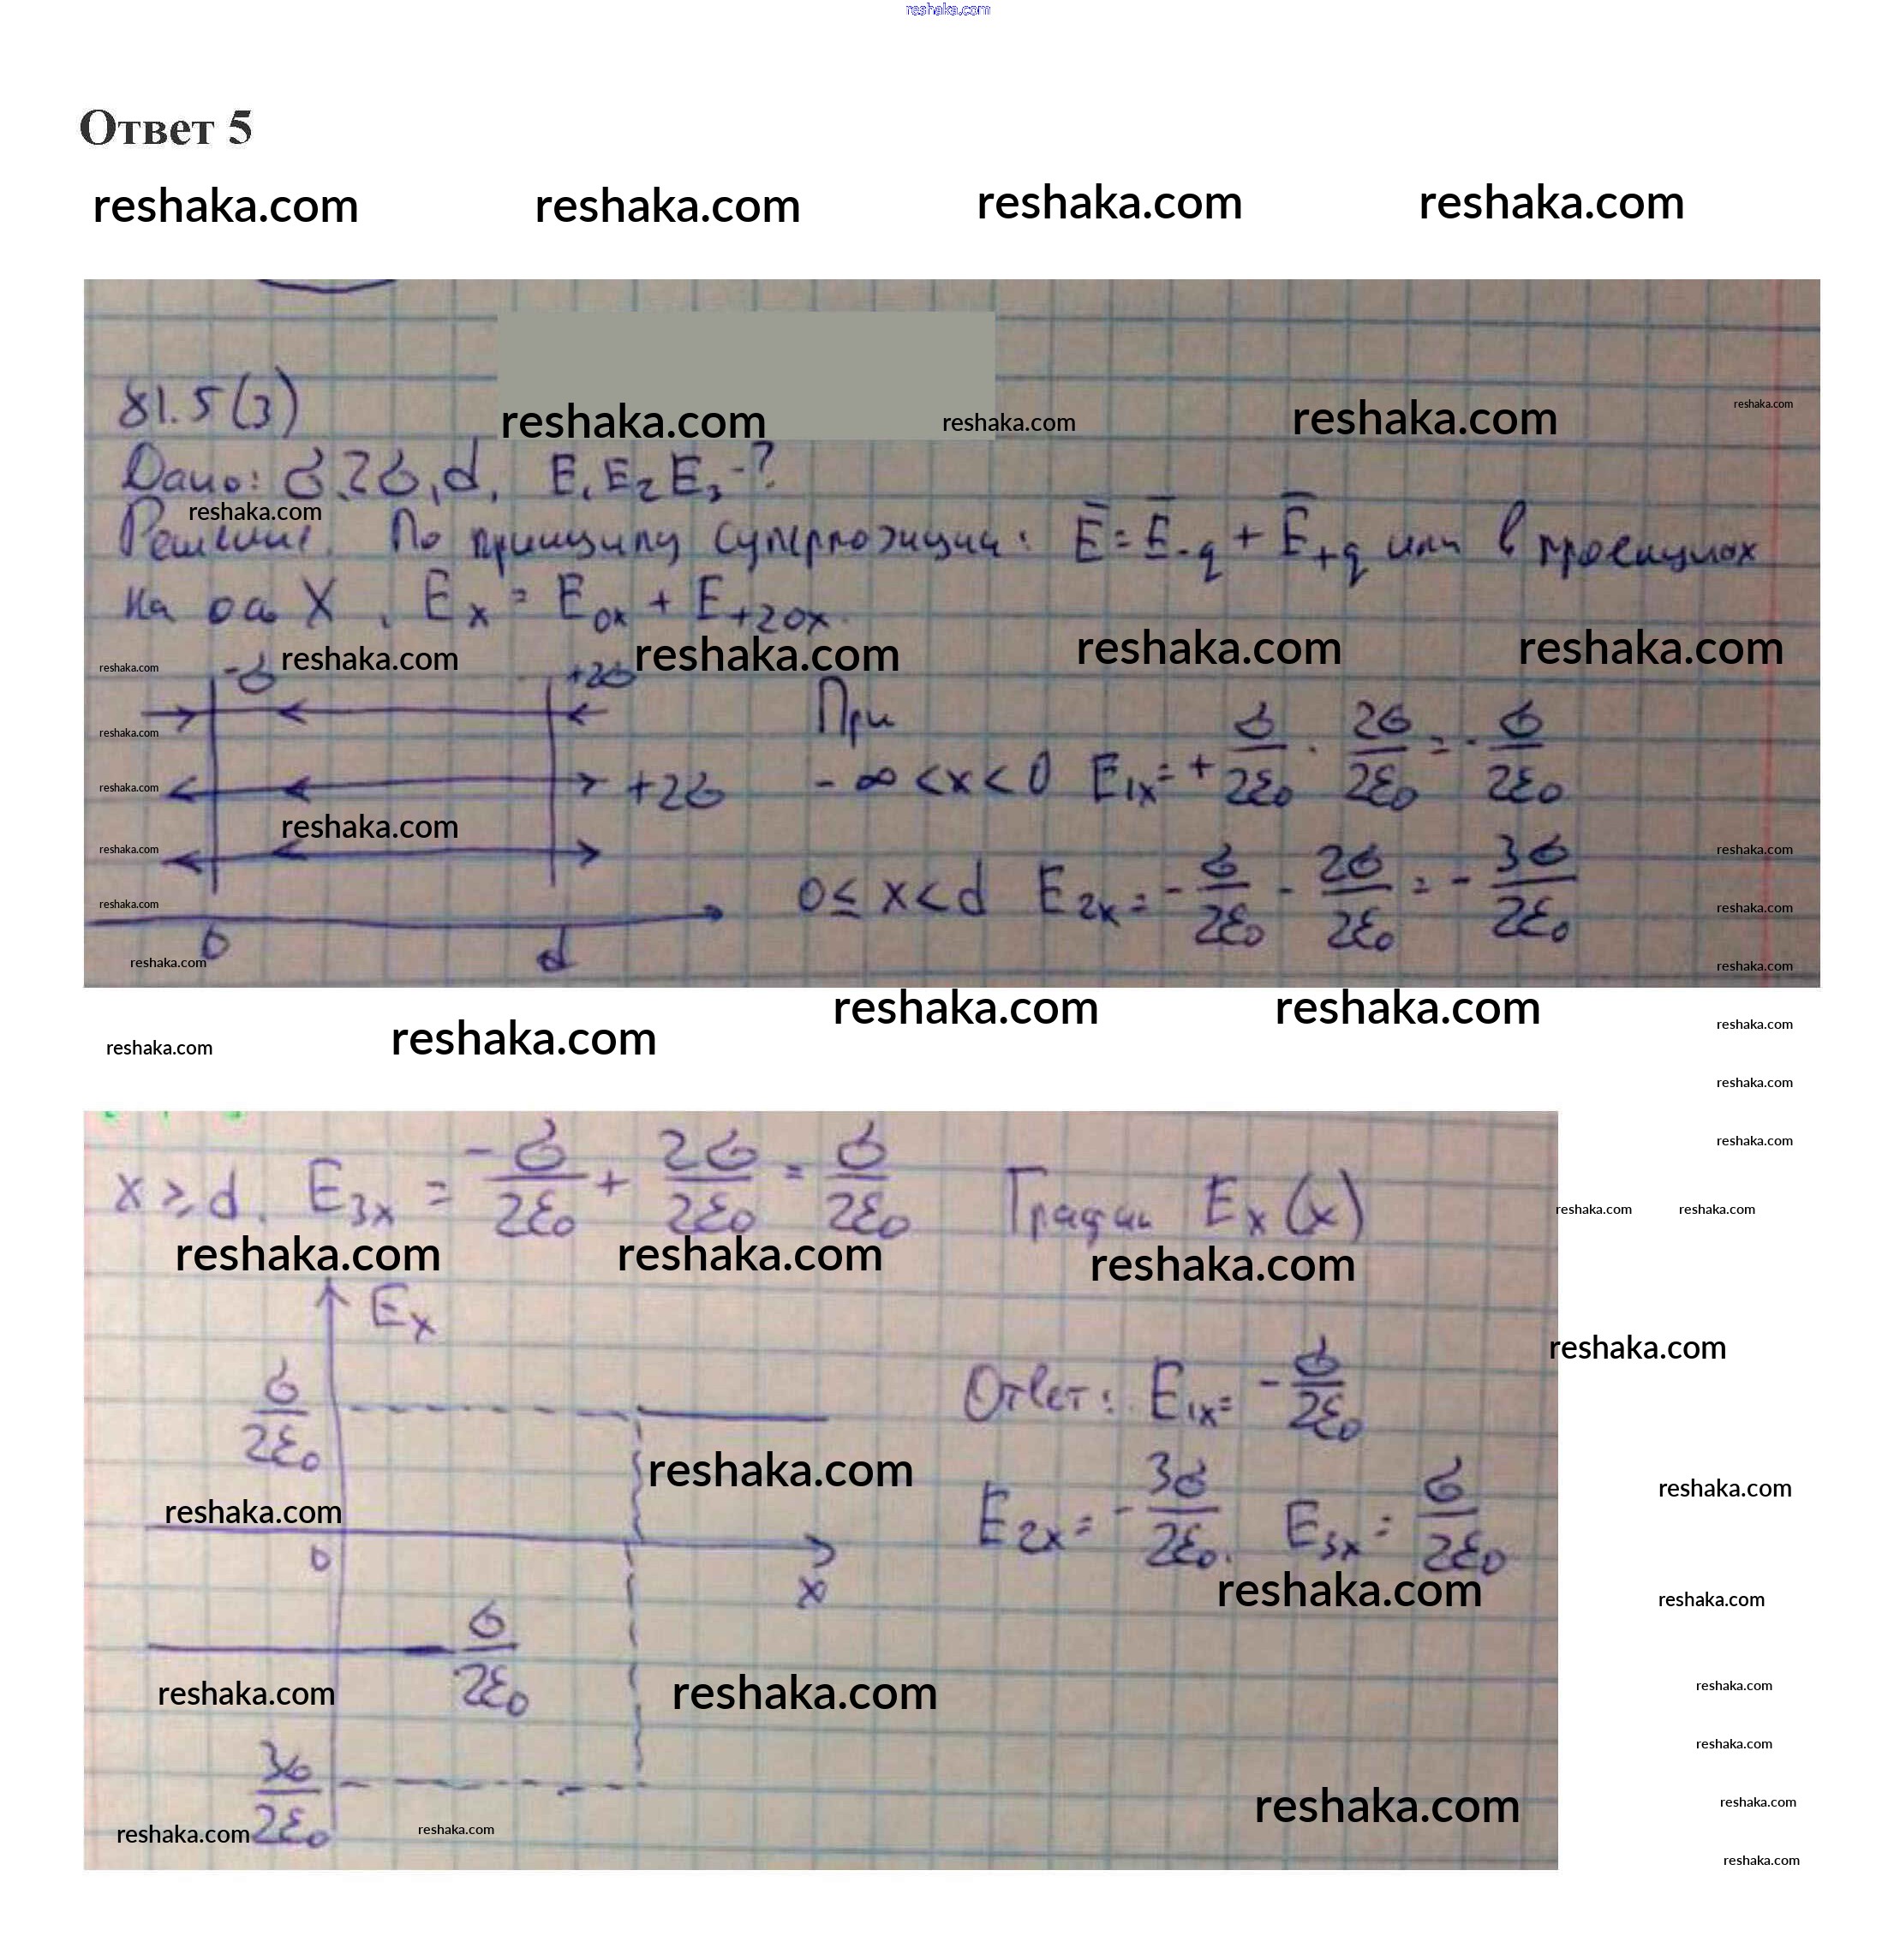 reshaka.com
Ответ 5
reshaka.com reshaka.com reshaka.com reshaka.com
81.5(3)
reshaka.com reshaka.com reshaka.com reshaka.com
Дано: σ, 2σ, d, E₁ E₂ E₃ -?
reshaka.com
Решение. По принципу суперпозиции: E̅ = E̅₋q + E̅₊q или в проекциях
на ось X, Eₓ = E₀ₓ + E₊₂₀ₓ.
reshaka.com reshaka.com reshaka.com reshaka.com reshaka.com
-σ +2σ
При
reshaka.com
-∞ < x < 0 E₁ₓ = + σ/2ε₀ - 2σ/2ε₀ = - σ/2ε₀
reshaka.com +2σ
reshaka.com
reshaka.com reshaka.com
0 ≤ x < d E₂ₓ = - σ/2ε₀ - 2σ/2ε₀ = - 3σ/2ε₀
reshaka.com reshaka.com
0 d
reshaka.com reshaka.com
reshaka.com reshaka.com reshaka.com reshaka.com reshaka.com
reshaka.com
reshaka.com
x ≥ d. E₃ₓ = -σ/2ε₀ + 2σ/2ε₀ = σ/2ε₀ График Eₓ(x)
reshaka.com reshaka.com
reshaka.com reshaka.com reshaka.com
Eₓ
reshaka.com
σ/2ε₀
Ответ: E₁ₓ = - σ/2ε₀
reshaka.com reshaka.com
reshaka.com
E₂ₓ = - 3σ/2ε₀. E₃ₓ = σ/2ε₀
0 x
reshaka.com reshaka.com
σ/2ε₀
reshaka.com reshaka.com reshaka.com
reshaka.com
3σ/2ε₀
reshaka.com reshaka.com
reshaka.com reshaka.com
reshaka.com